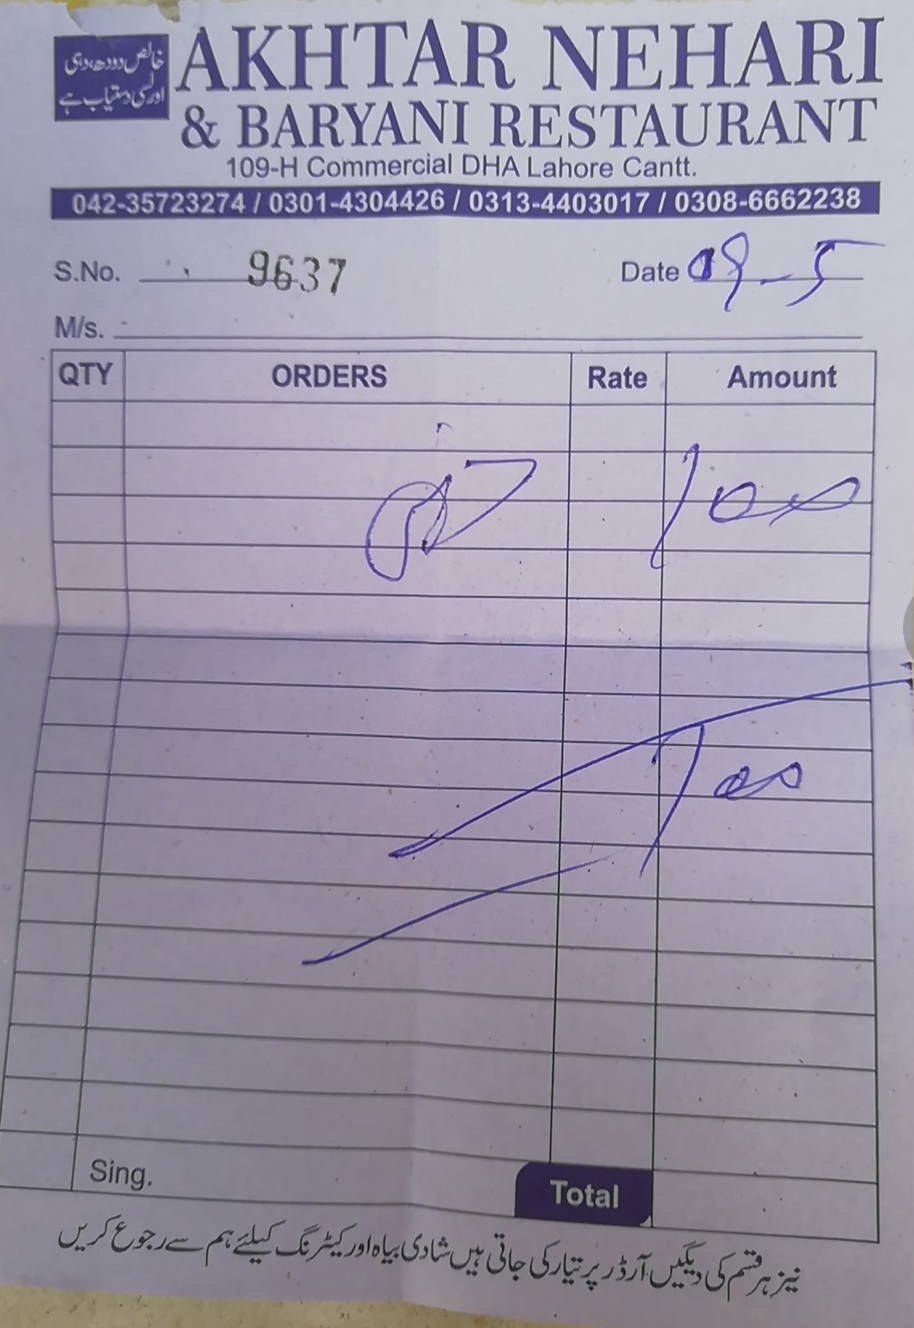 خالص دودھ، دہی
اور لسی دستیاب ہے
AKHTAR NEHARI
& BARYANI RESTAURANT
109-H Commercial DHA Lahore Cantt.
042-35723274 / 0301-4304426 / 0313-4403017 / 0308-6662238
S.No. 9637 Date 09-5
M/s.
QTY ORDERS Rate Amount
100
100
Sing. Total
نیز ہر قسم کی دیگیں آرڈر پر تیار کی جاتی ہیں شادی بیاہ اور کیٹرنگ کیلئے ہم سے رجوع کریں